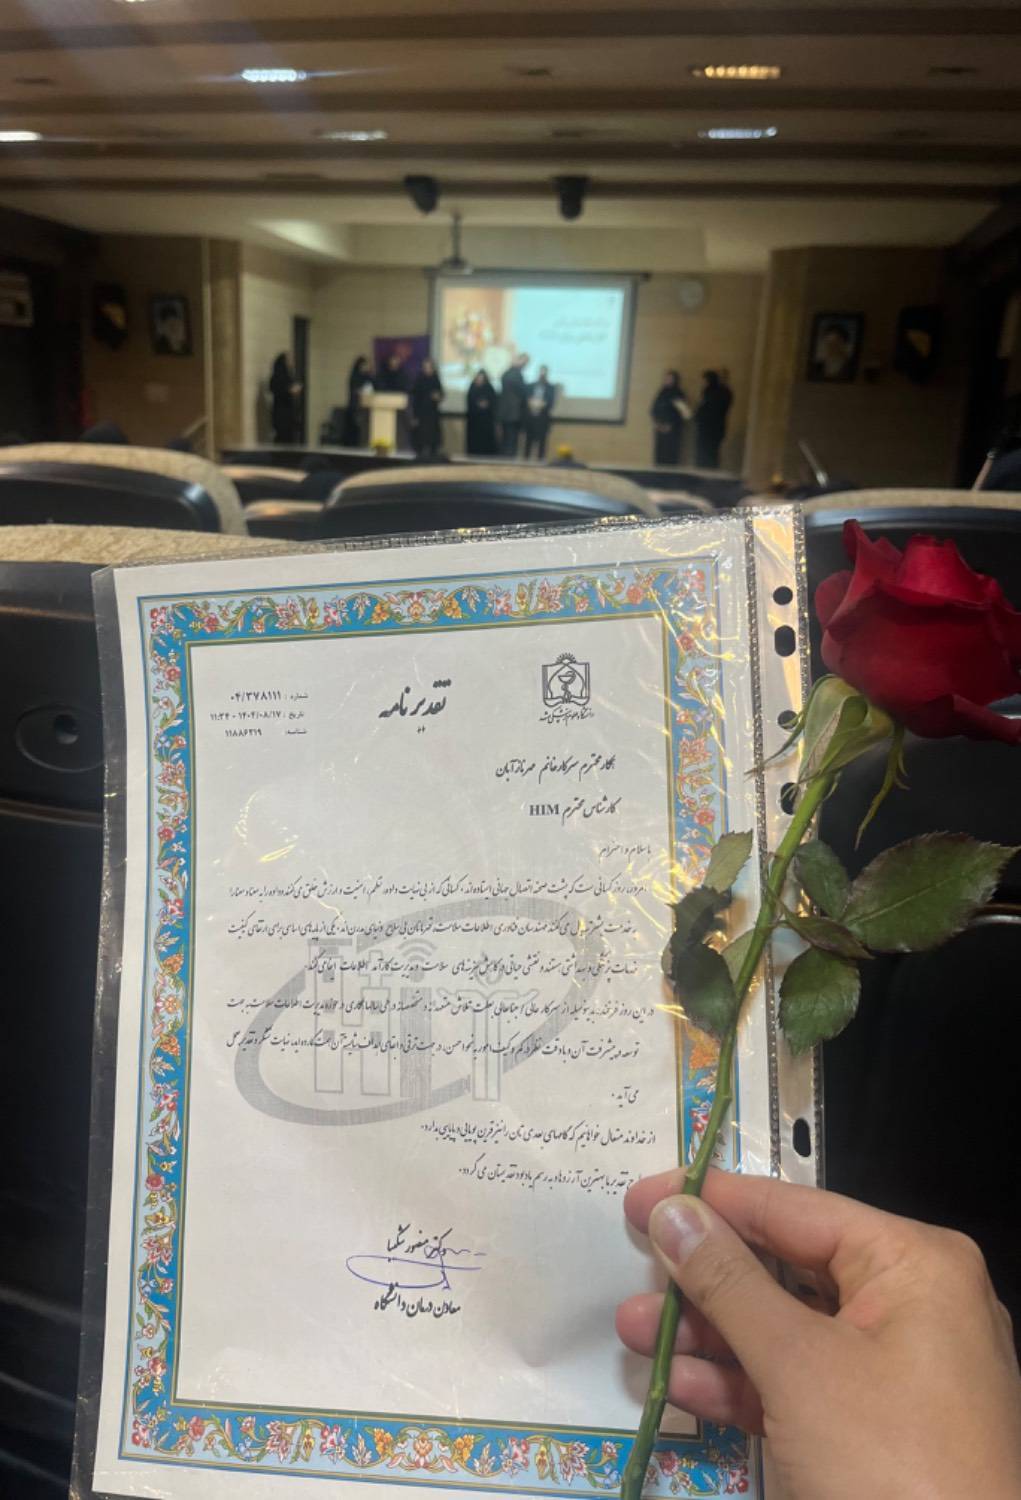 دانشگاه علوم پزشکی مشهد
تقدیر نامه
شماره : ۰۴/۳۷۸۱۱۱
تاریخ : ۱۴۰۴/۰۸/۱۷ - ۱۱:۳۴
شناسه: ۱۱۸۸۶۲۱۹
همکار محترم سرکار خانم مهرناز آبان
کارشناس محترم HIM
با سلام و احترام
امروز، روز کسانی ست که پشت صحنه اتصال جهانی ایستاده‌اند، کسانی که از بی نهایت داده، نظم، امنیت و ارزش خلق می کنند و داده را به معنا و معنا را
به خدمت بشر تبدیل می کنند مهندسان فناوری اطلاعات سلامت، قهرمانان بی سلاح دنیای مدرن اند، یکی از پایه های اساسی برای ارتقای کیفیت
خدمات پزشکی و بهداشتی هستند و نقشی حیاتی در کاهش هزینه های سلامت و مدیریت کارآمد اطلاعات ایفا می کنند.
در این روز فرخنده، بدینوسیله از سرکار عالی / جنابعالی بعلت تلاش متعهدانه و تخصصانه در طی سالها همکاری در حوزه مدیریت اطلاعات سلامت به جهت
توسعه و پیشرفت آن و با دقت نظر در کم و کیف امور به نحو احسن، در جهت ترقی و ابقای اهداف شایسته آن همت گمارده اید، نهایت تشکر و تقدیر بعمل
می آید .
از خداوند متعال خواهانیم که گامهای بعدی تان را نیز قرین پویایی و پایایی بدارد.
تقدیر با بهترین آرزوها به رسم یادبود تقدیمتان می گردد.
دکتر منصور شکیبا
معاون درمان دانشگاه